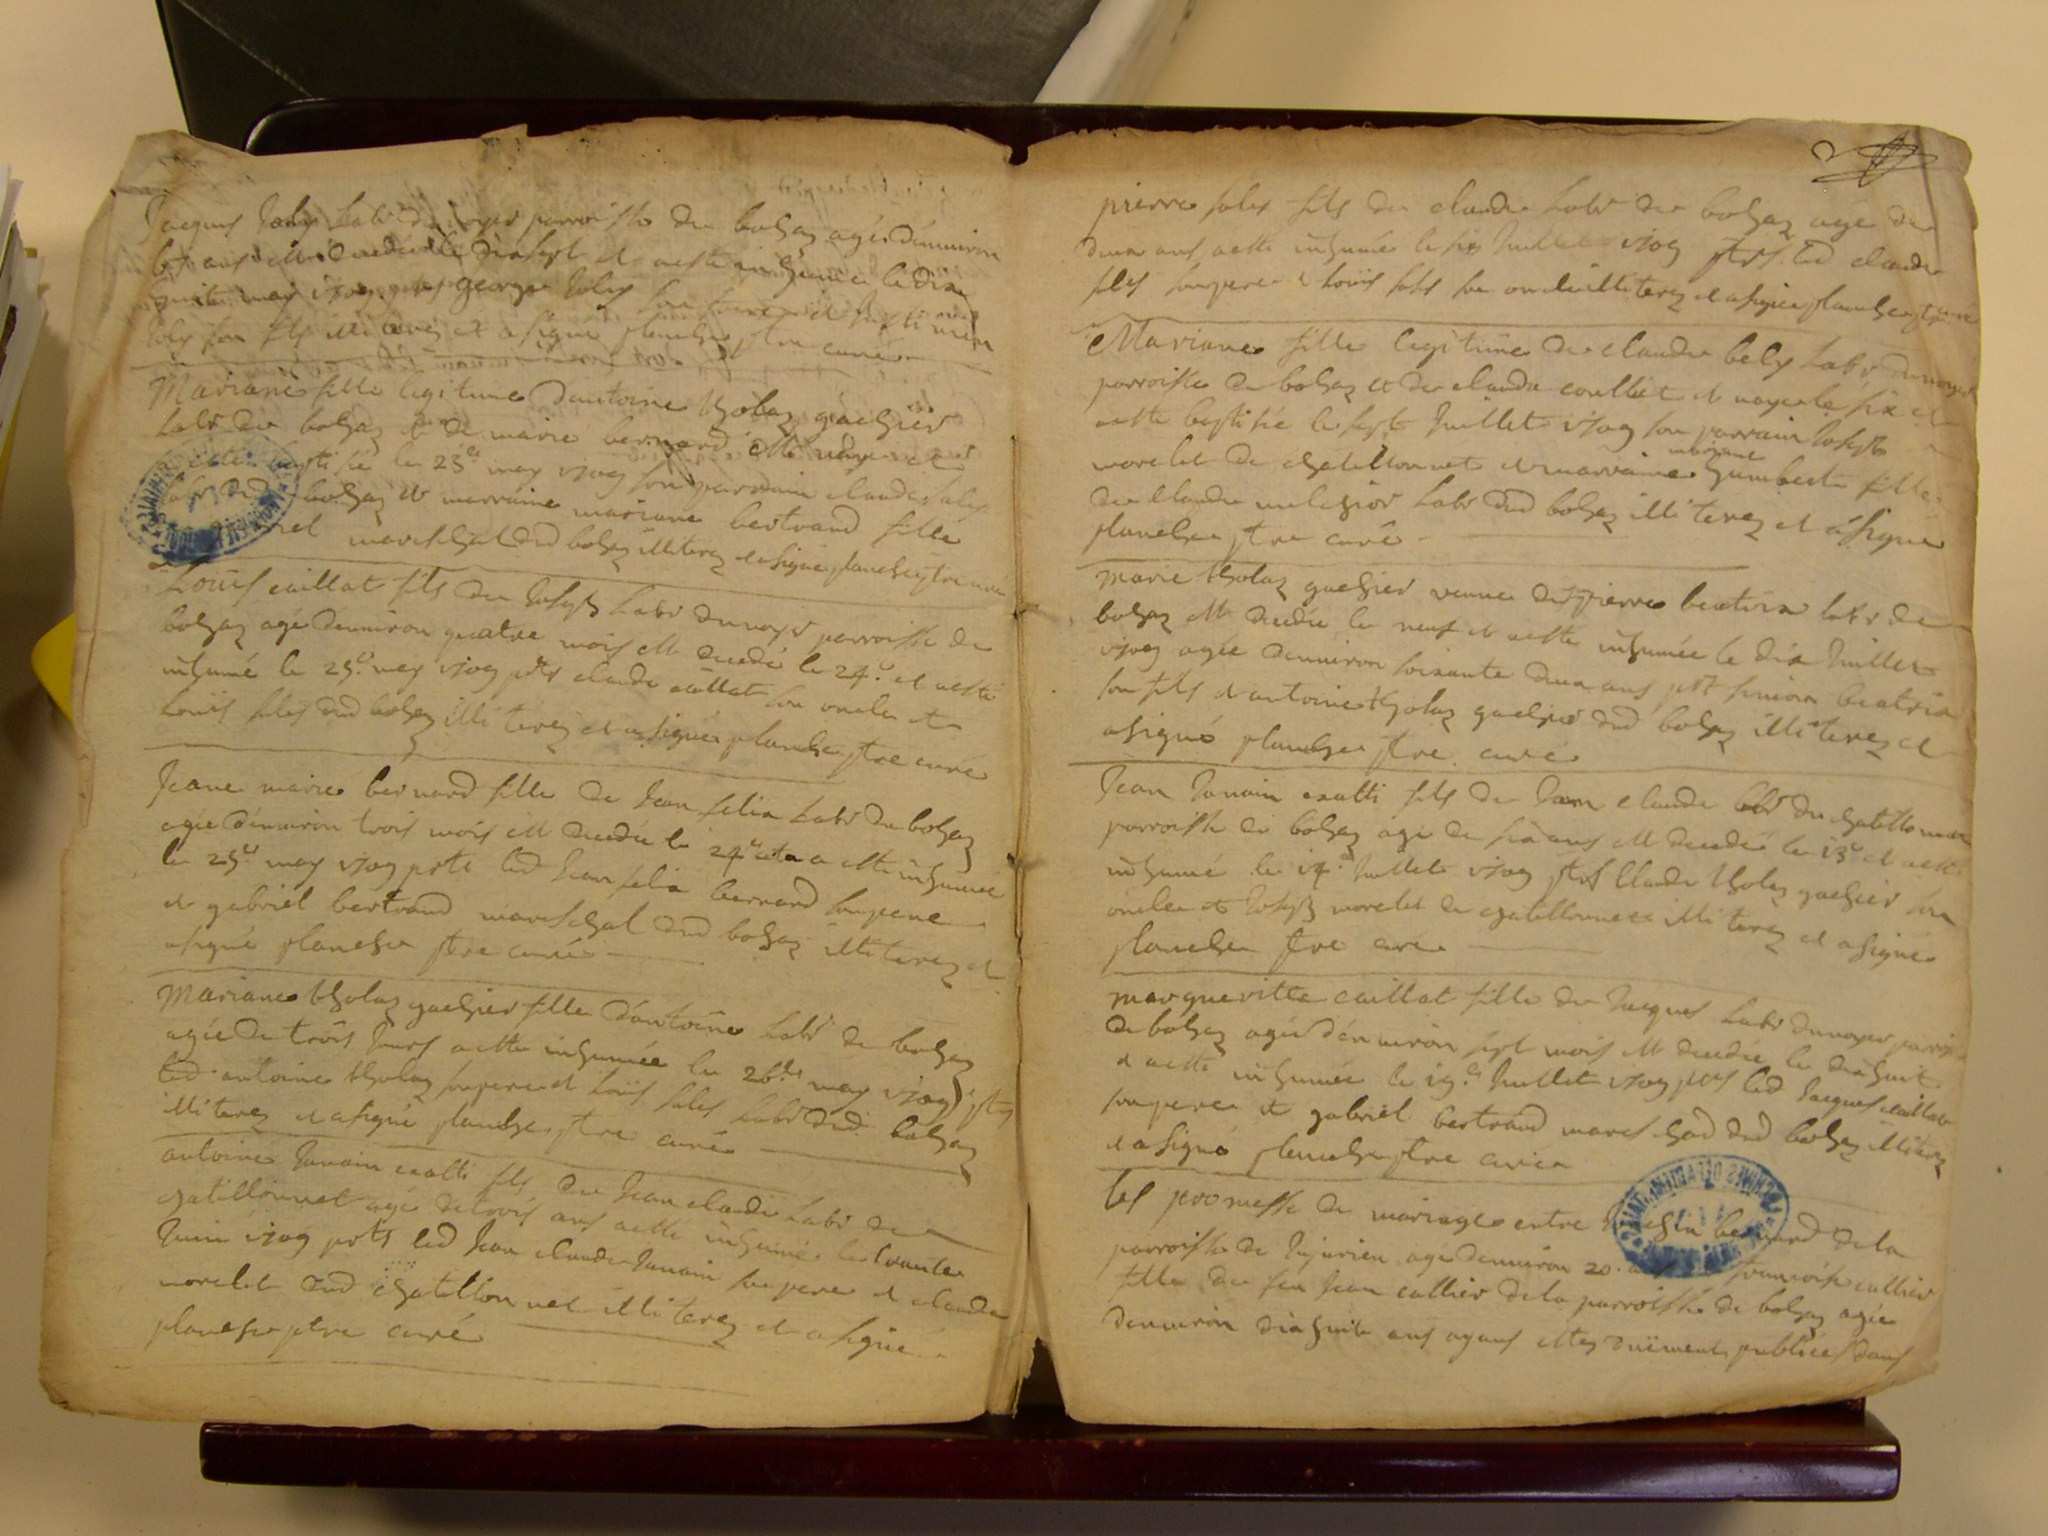 Jacques Joly habt du noyer parroisse de bohaz agé d'environ
ans est decedé le dixsept et a esté inhumé le dix
huit may 1709 pnts george Joly son frere et
Joly son fils illiterez et a signé planche ptre curé
Mariane fille legitime d'antoine tholaz gaehier
habt de bohaz et de marie bernard est née et
a esté baptisée le 23e may 1709 son parrain claude
habt dud bohaz et marraine mariane bertrand fille
mareschal dud bohaz illiterez et a signé planche ptre curé
Louis caillat fils de Joseph habt du noyer parroisse de
bohaz agé denviron quatre mois est decedé le 24e et a esté
inhumé le 25e may 1709 pnts claude caillat son oncle et
Louis sales dud bohaz illiterez et a signé planche ptre curé
Jeane marie bernard fille de Jean felix habt de bohaz
agée d'environ trois mois est decedée le 24e et a esté inhumée
le 25e may 1709 pnts led Jean felix bernard son pere
et gabriel bertrand mareschal dud bohaz illiterez et
a signé planche ptre curé
Mariane tholaz gaehier fille d'antoine habt de bohaz
agée de trois Jours a esté inhumée le 26e may 1709 pnts
led antoine tholaz son pere et Louis sales habt dud bohaz
illiterez et a signé planche ptre curé
antoine Janain exatti fils de Jean claude habt de
chatillonnet agé de trois ans a esté inhumé le trante
Juin 1709 pnts led Jean claude Janain son pere et claude
morelet dud chatillonnet illiterez et a signé
planche ptre curé
pierre sales fils de claude habt de bohaz agé de
deux ans a esté inhumé le six Juillet 1709 pnts led claude
sales son pere et Louis sales son oncle illiterez et a signé planche ptre curé
Mariane fille legitime de claude bely habt du noyer
parroisse de bohaz et de claude coullet est nayee le six et
a esté baptisée le sept Juillet 1709 son parrain Joseph
morelet de chatillonnet et marraine mariane humbert fille
de claude melchior habt dud bohaz illiterez et a signé
planche ptre curé
Marie tholaz gaehier veuve de pierre beatrix habt de
bohaz est decedée le neuf et a esté inhumée le dix Juillet
1709 agée denviron soixante deux ans pnt beatrix
son fils et antoine tholaz gaehier dud bohaz illiterez et
a signé planche ptre curé
Jean Janain exatti fils de Jean claude habt de chatillonnet
parroisse de bohaz agé de six ans est decedé le 13e et a esté
inhumé le 14e Juillet 1709 pnts Claude tholaz gaehier son
oncle et Joseph morelet de chatillonnet illiterez et a signé
planche ptre curé
margueritte caillat fille de Jacques habt du noyer parroisse
de bohaz agée d'environ sept mois est decedée le dixhuit
et a esté inhumée le 19e Juillet 1709 pnts led Jacques caillat
son pere et gabriel bertrand mareschal dud bohaz illiterez
et a signé planche ptre curé
Les promesse de mariage entre bernard de la
parroisse de Jujurieu agé denviron 20 françoise cullier
fille de feu Jean cullier de la parroisse de bohaz agée
denviron dixhuit ans ayans estez duement publiées dans